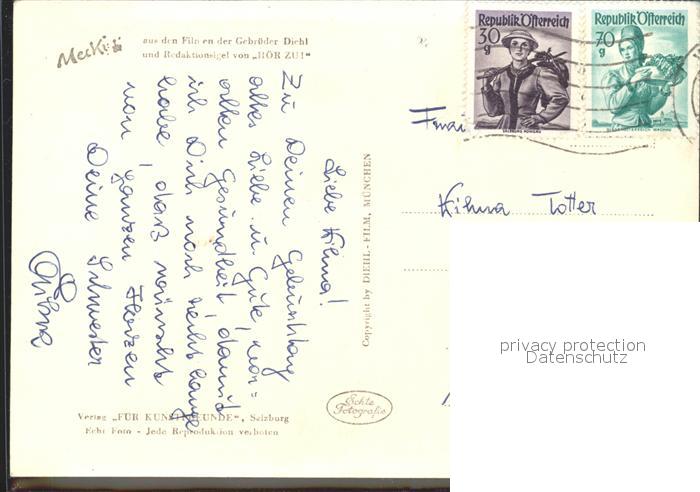 Mecki
aus den Film en der Gebrüder Diehl
und Redaktionsigel von „HÖR ZU!"
Liebe Hilma!
Zu Deinen Geburtstag
alles Liebe u. Gute, vor=
allen Gesundheit, damit
ich Dich noch recht lange
habe, daß wünscht
von ganzen Herzen
Deine Schwester
Verlag „FÜR KUNSTFREUNDE", Salzburg
Echt Foto - Jede Reproduktion verboten
Copyright by DIEHL-FILM, MÜNCHEN
Echte
Fotografie
Republik Österreich
30
g
SALZBURG PONGAU
Republik Österreich
70
g
NIEDERÖSTERREICH WACHAU
Frau
Hilma Totter
privacy protection
Datenschutz